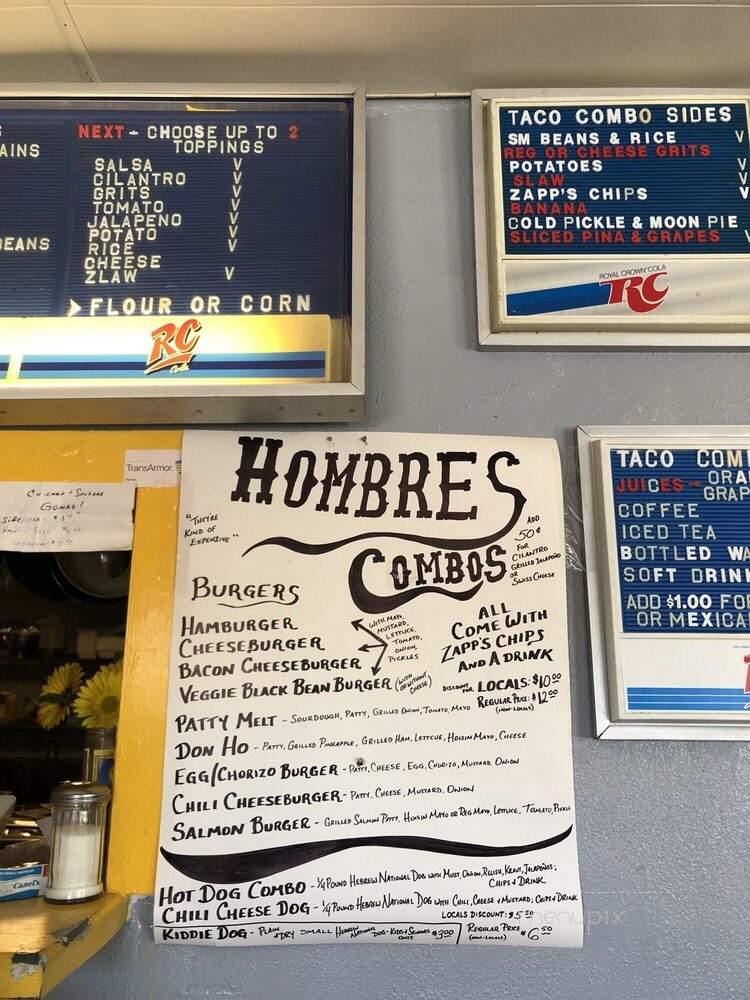 AINS
BEANS
NEXT - CHOOSE UP TO 2
TOPPINGS
SALSA V
CILANTRO V
GRITS V
TOMATO V
JALAPENO V
POTATO V
RICE V
CHEESE
ZLAW V
FLOUR OR CORN
RC
Cola
TACO COMBO SIDES
SM BEANS & RICE V
REG OR CHEESE GRITS
POTATOES V
SLAW V
ZAPP'S CHIPS V
BANANA
COLD PICKLE & MOON PIE
SLICED PINA & GRAPES V
ROYAL CROWN COLA
RC
TransArmor
CHICKEN & SAUSAGE
GUMBO!
HOMBRES
COMBOS
"THEY'RE
KIND OF
EXPENSIVE"
ADD
50¢
FOR
CILANTRO
GRILLED JALAPEÑO
OR
SWISS CHEESE
BURGERS
HAMBURGER
CHEESEBURGER
BACON CHEESEBURGER
VEGGIE BLACK BEAN BURGER (WITH OR WITHOUT CHEESE)
WITH MAYO,
MUSTARD,
LETTUCE,
TOMATO,
ONION,
PICKLES
ALL
COME WITH
ZAPP'S CHIPS
AND A DRINK
DISCOUNT FOR LOCALS: $10.00
REGULAR PRICE: $12.00
(NON-LOCALS)
PATTY MELT - SOURDOUGH, PATTY, GRILLED ONION, TOMATO, MAYO
DON HO - PATTY, GRILLED PINEAPPLE, GRILLED HAM, LETTCUE, HOISIN MAYO, CHEESE
EGG/CHORIZO BURGER - PATTY, CHEESE, EGG, CHORIZO, MUSTARD, ONION
CHILI CHEESEBURGER - PATTY, CHEESE, MUSTARD, ONION
SALMON BURGER - GRILLED SALMON PATTY, HOISIN MAYO OR REG MAYO, LETTUCE, TOMATO, PICKLE
HOT DOG COMBO - 1/4 POUND HEBREW NATIONAL DOG WITH MUST, ONION, RELISH, KRAUT, JALAPEÑOS;
CHIPS & DRINK
CHILI CHEESE DOG - 1/4 POUND HEBREW NATIONAL DOG WITH CHILI, CHEESE & MUSTARD; CHIPS & DRINK
LOCALS DISCOUNT: $5.50
KIDDIE DOG - PLAIN & DRY SMALL HEBREW NATIONAL DOG - KIDS & SENIORS ONLY $3.00
REGULAR PRICE $6.50
(NON-LOCALS)
TACO COM
JUICES - ORA
GRAP
COFFEE
ICED TEA
BOTTLED WA
SOFT DRIN
ADD $1.00 FO
OR MEXICA
Canel's
menupix